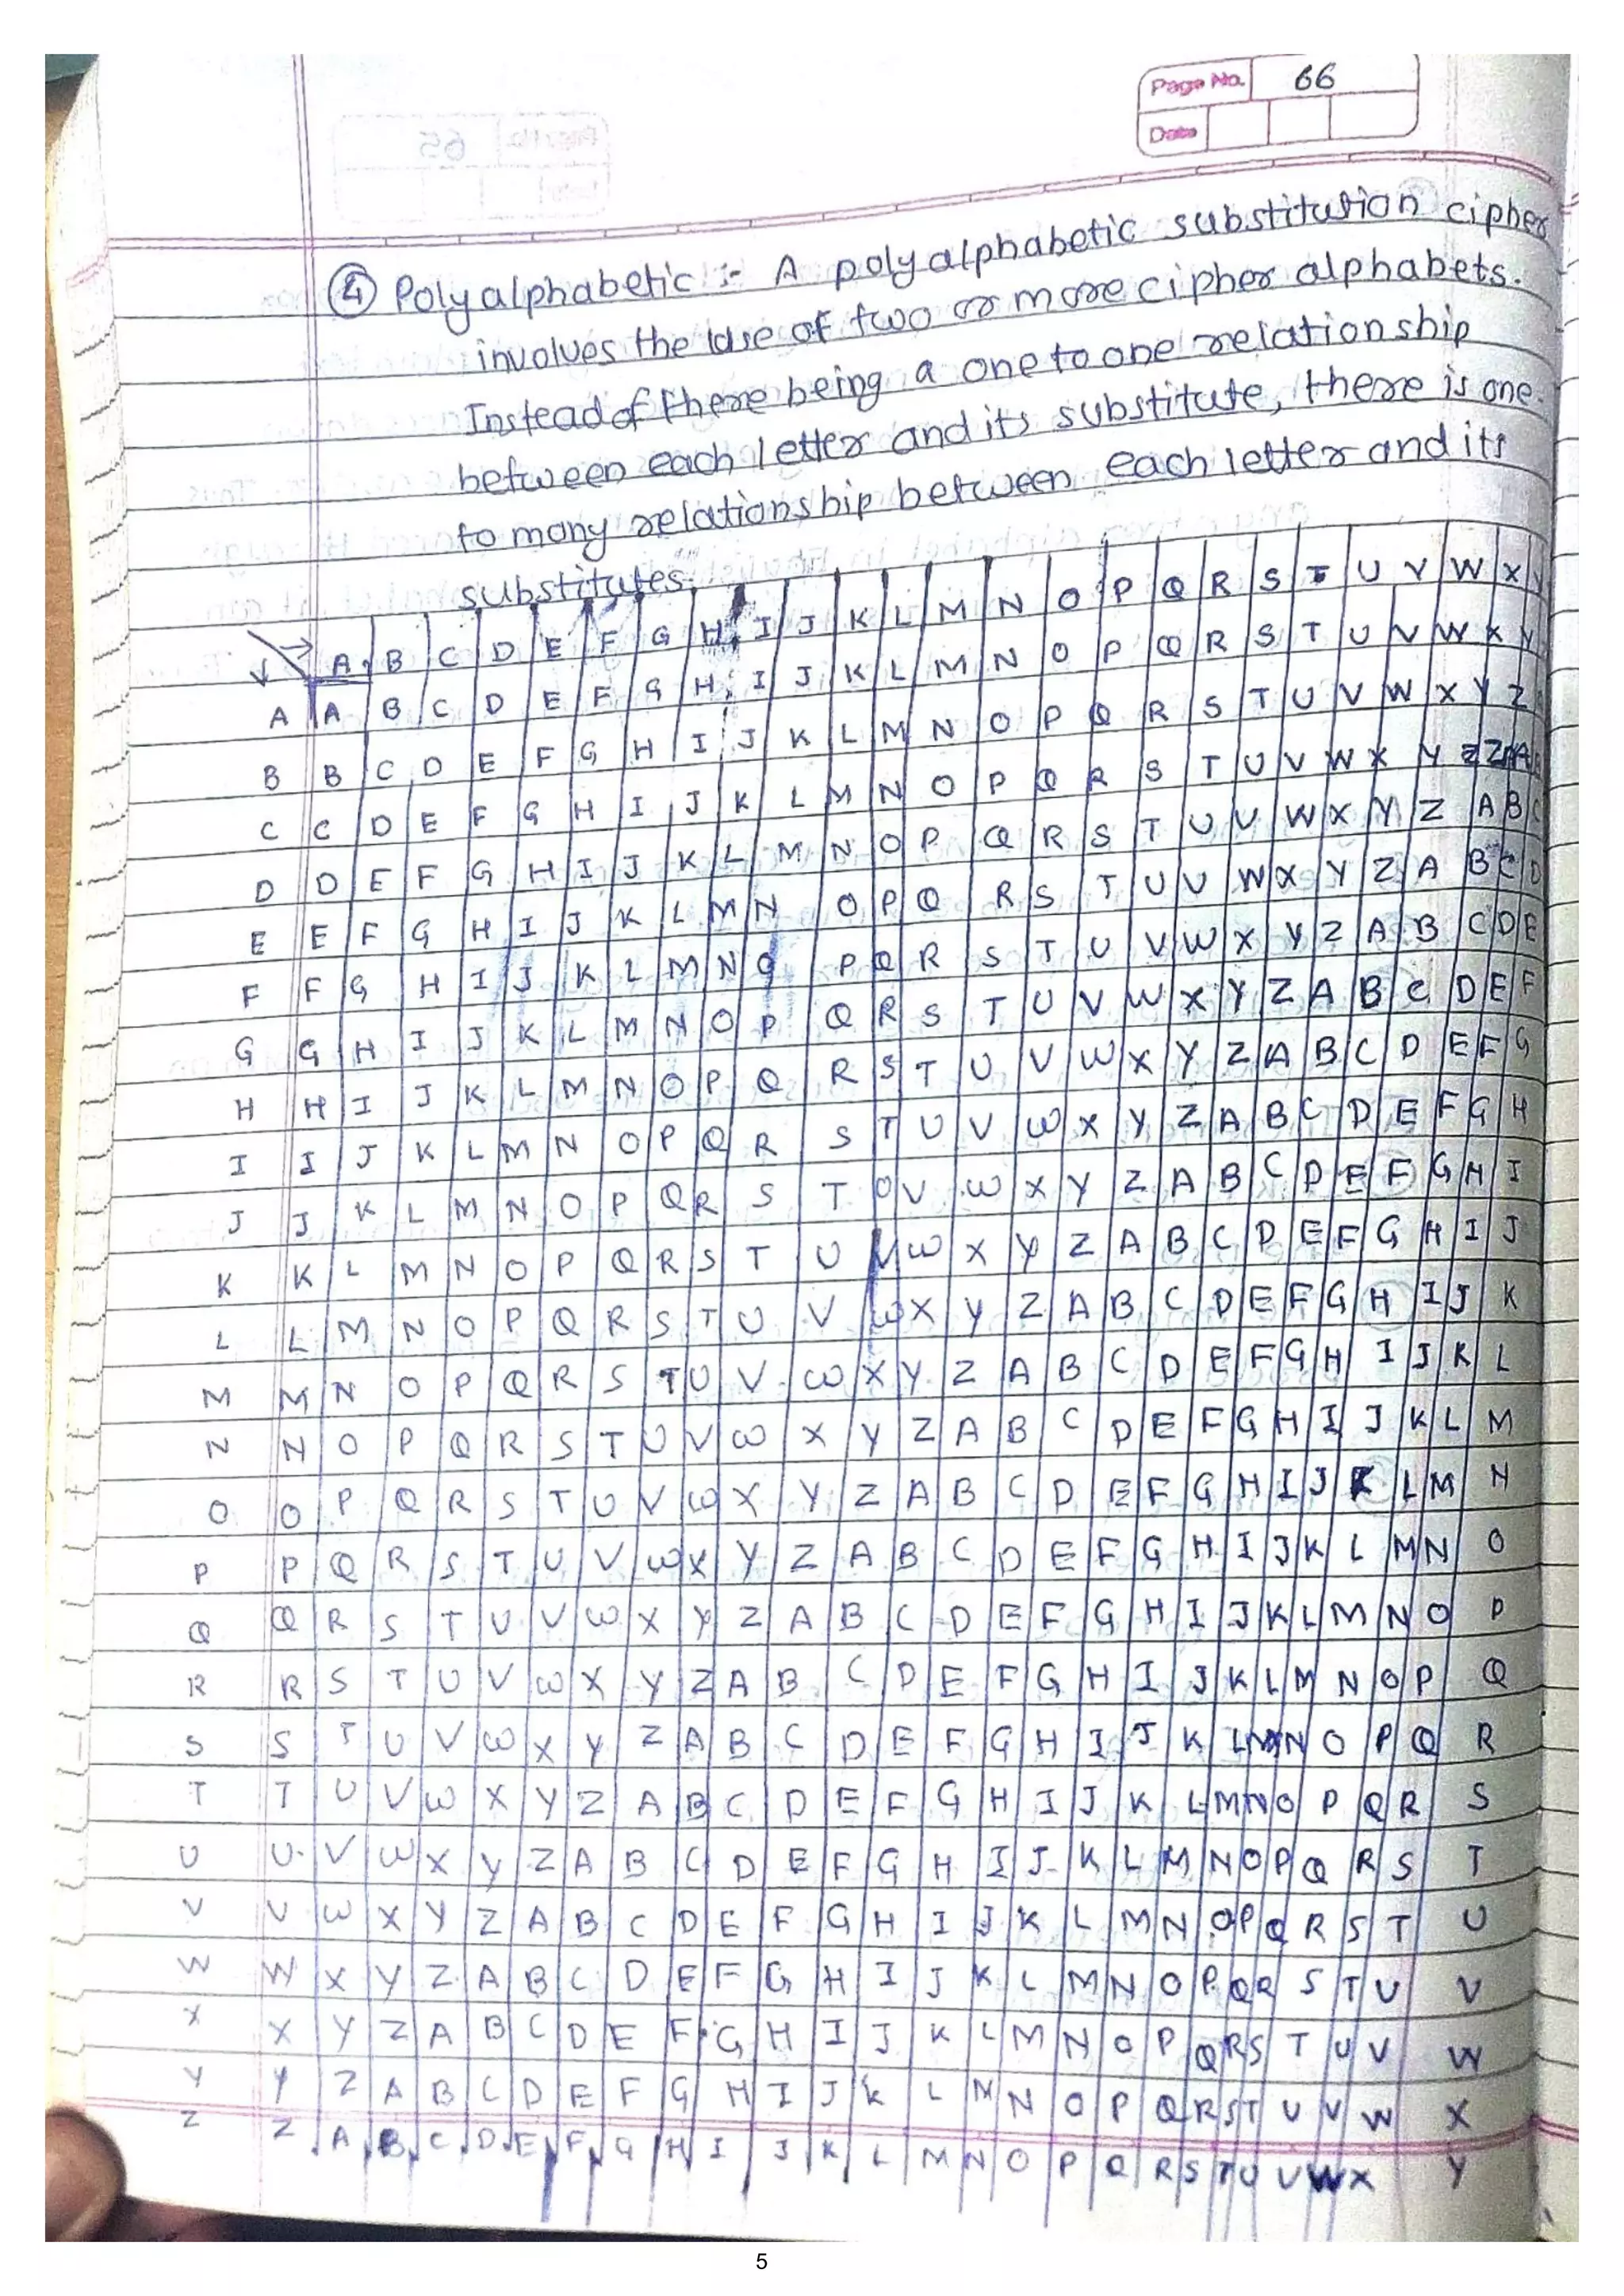 Page No. 66
Date
④ Polyalphabetic :- A polyalphabetic substitution cipher
involves the use of two or more cipher alphabets.
Instead of there being a one to one relationship
between each letter and its substitute, there is one
to many relationship between each letter and its
substitutes.
A B C D E F G H I J K L M N O P Q R S T U V W X Y
A A B C D E F G H I J K L M N O P Q R S T U V W X Y
B B C D E F G H I J K L M N O P Q R S T U V W X Y Z
C C D E F G H I J K L M N O P Q R S T U V W X Y Z A
D D E F G H I J K L M N O P Q R S T U V W X Y Z A B C
E E F G H I J K L M N O P Q R S T U V W X Y Z A B C D
F F G H I J K L M N O P Q R S T U V W X Y Z A B C D E
G G H I J K L M N O P Q R S T U V W X Y Z A B C D E F
H H I J K L M N O P Q R S T U V W X Y Z A B C D E F G
I I J K L M N O P Q R S T U V W X Y Z A B C D E F G H
J J K L M N O P Q R S T U V W X Y Z A B C D E F G H I
K K L M N O P Q R S T U V W X Y Z A B C D E F G H I J
L L M N O P Q R S T U V W X Y Z A B C D E F G H I J K
M M N O P Q R S T U V W X Y Z A B C D E F G H I J K L
N N O P Q R S T U V W X Y Z A B C D E F G H I J K L M
O O P Q R S T U V W X Y Z A B C D E F G H I J K L M N
P P Q R S T U V W X Y Z A B C D E F G H I J K L M N O
Q Q R S T U V W X Y Z A B C D E F G H I J K L M N O P
R R S T U V W X Y Z A B C D E F G H I J K L M N O P Q
S S T U V W X Y Z A B C D E F G H I J K L M N O P Q R
T T U V W X Y Z A B C D E F G H I J K L M N O P Q R S
U U V W X Y Z A B C D E F G H I J K L M N O P Q R S T
V V W X Y Z A B C D E F G H I J K L M N O P Q R S T U
W W X Y Z A B C D E F G H I J K L M N O P Q R S T U V
X X Y Z A B C D E F G H I J K L M N O P Q R S T U V W
Y Y Z A B C D E F G H I J K L M N O P Q R S T U V W X
Z Z A B C D E F G H I J K L M N O P Q R S T U V W X Y
5